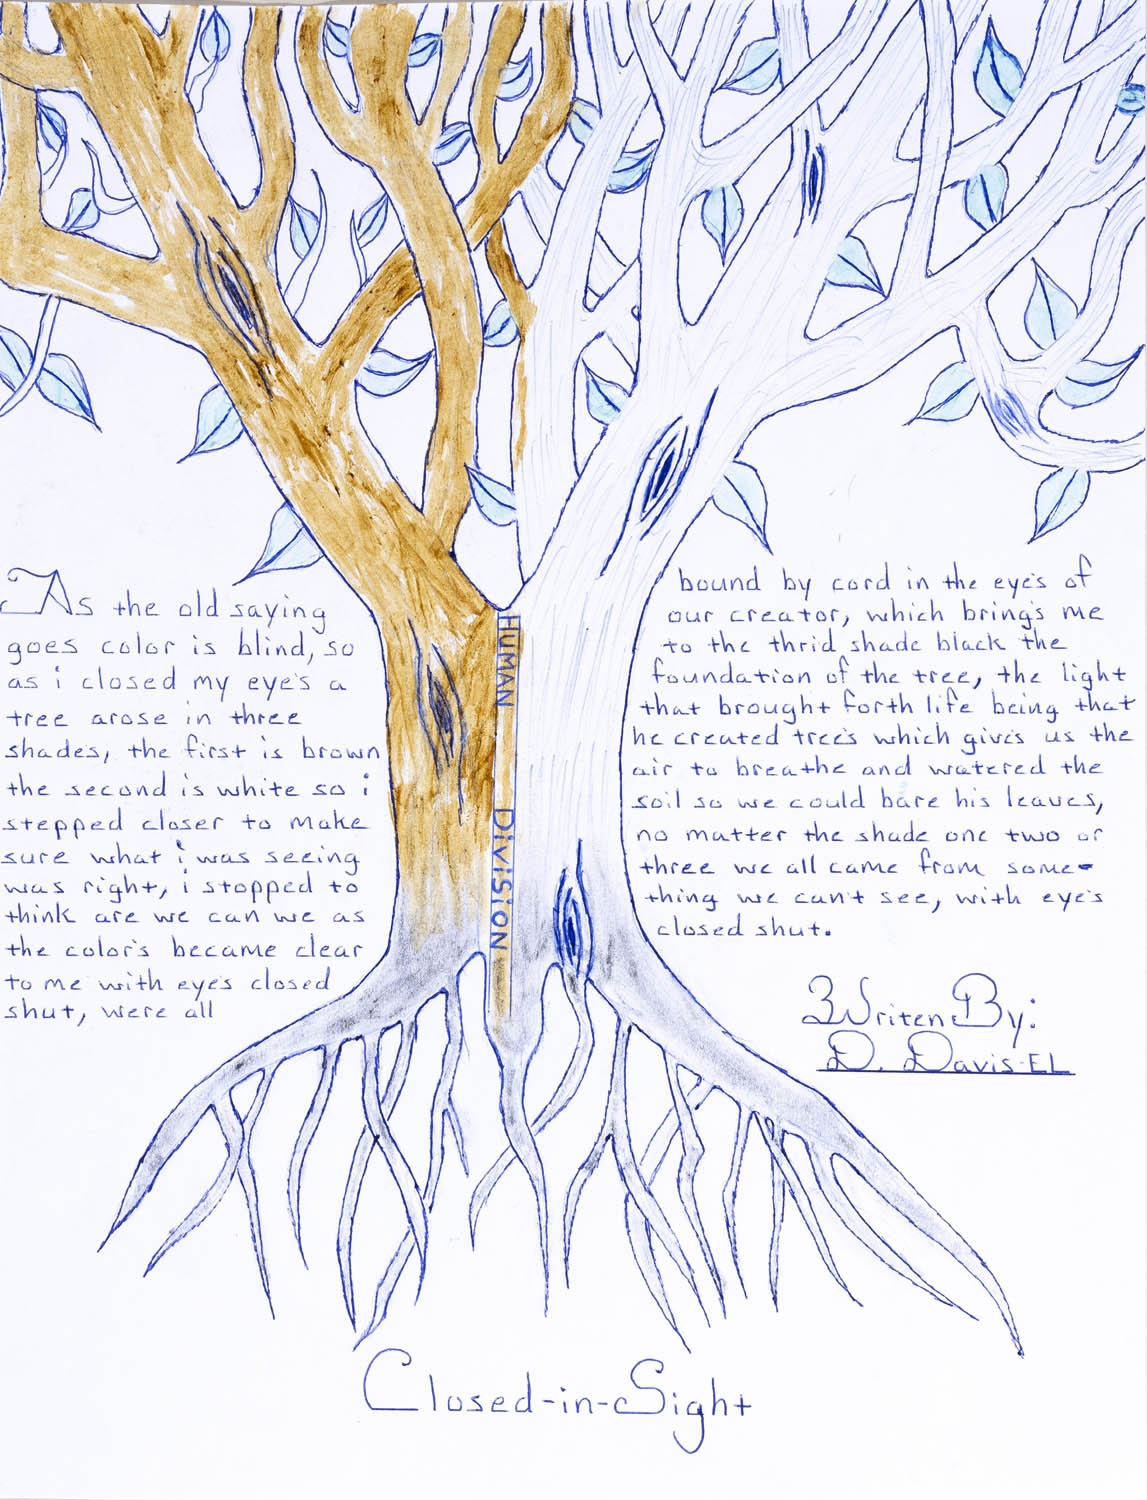 As the old saying
goes color is blind, so
as i closed my eye's a
tree arose in three
shades, the first is brown
the second is white so i
stepped closer to make
sure what i was seeing
was right, i stopped to
think are we can we as
the color's became clear
to me with eye's closed
shut, we're all
HUMAN DiViSiON
bound by cord in the eye's of
our creator, which bring's me
to the thrid shade black the
foundation of the tree, the light
that brought forth life being that
he created tree's which give's us the
air to breathe and watered the
soil so we could bare his leaves,
no matter the shade one two or
three we all came from some-
thing we can't see, with eye's
closed shut.
Writen By:
D. Davis-EL
Closed-in-Sight